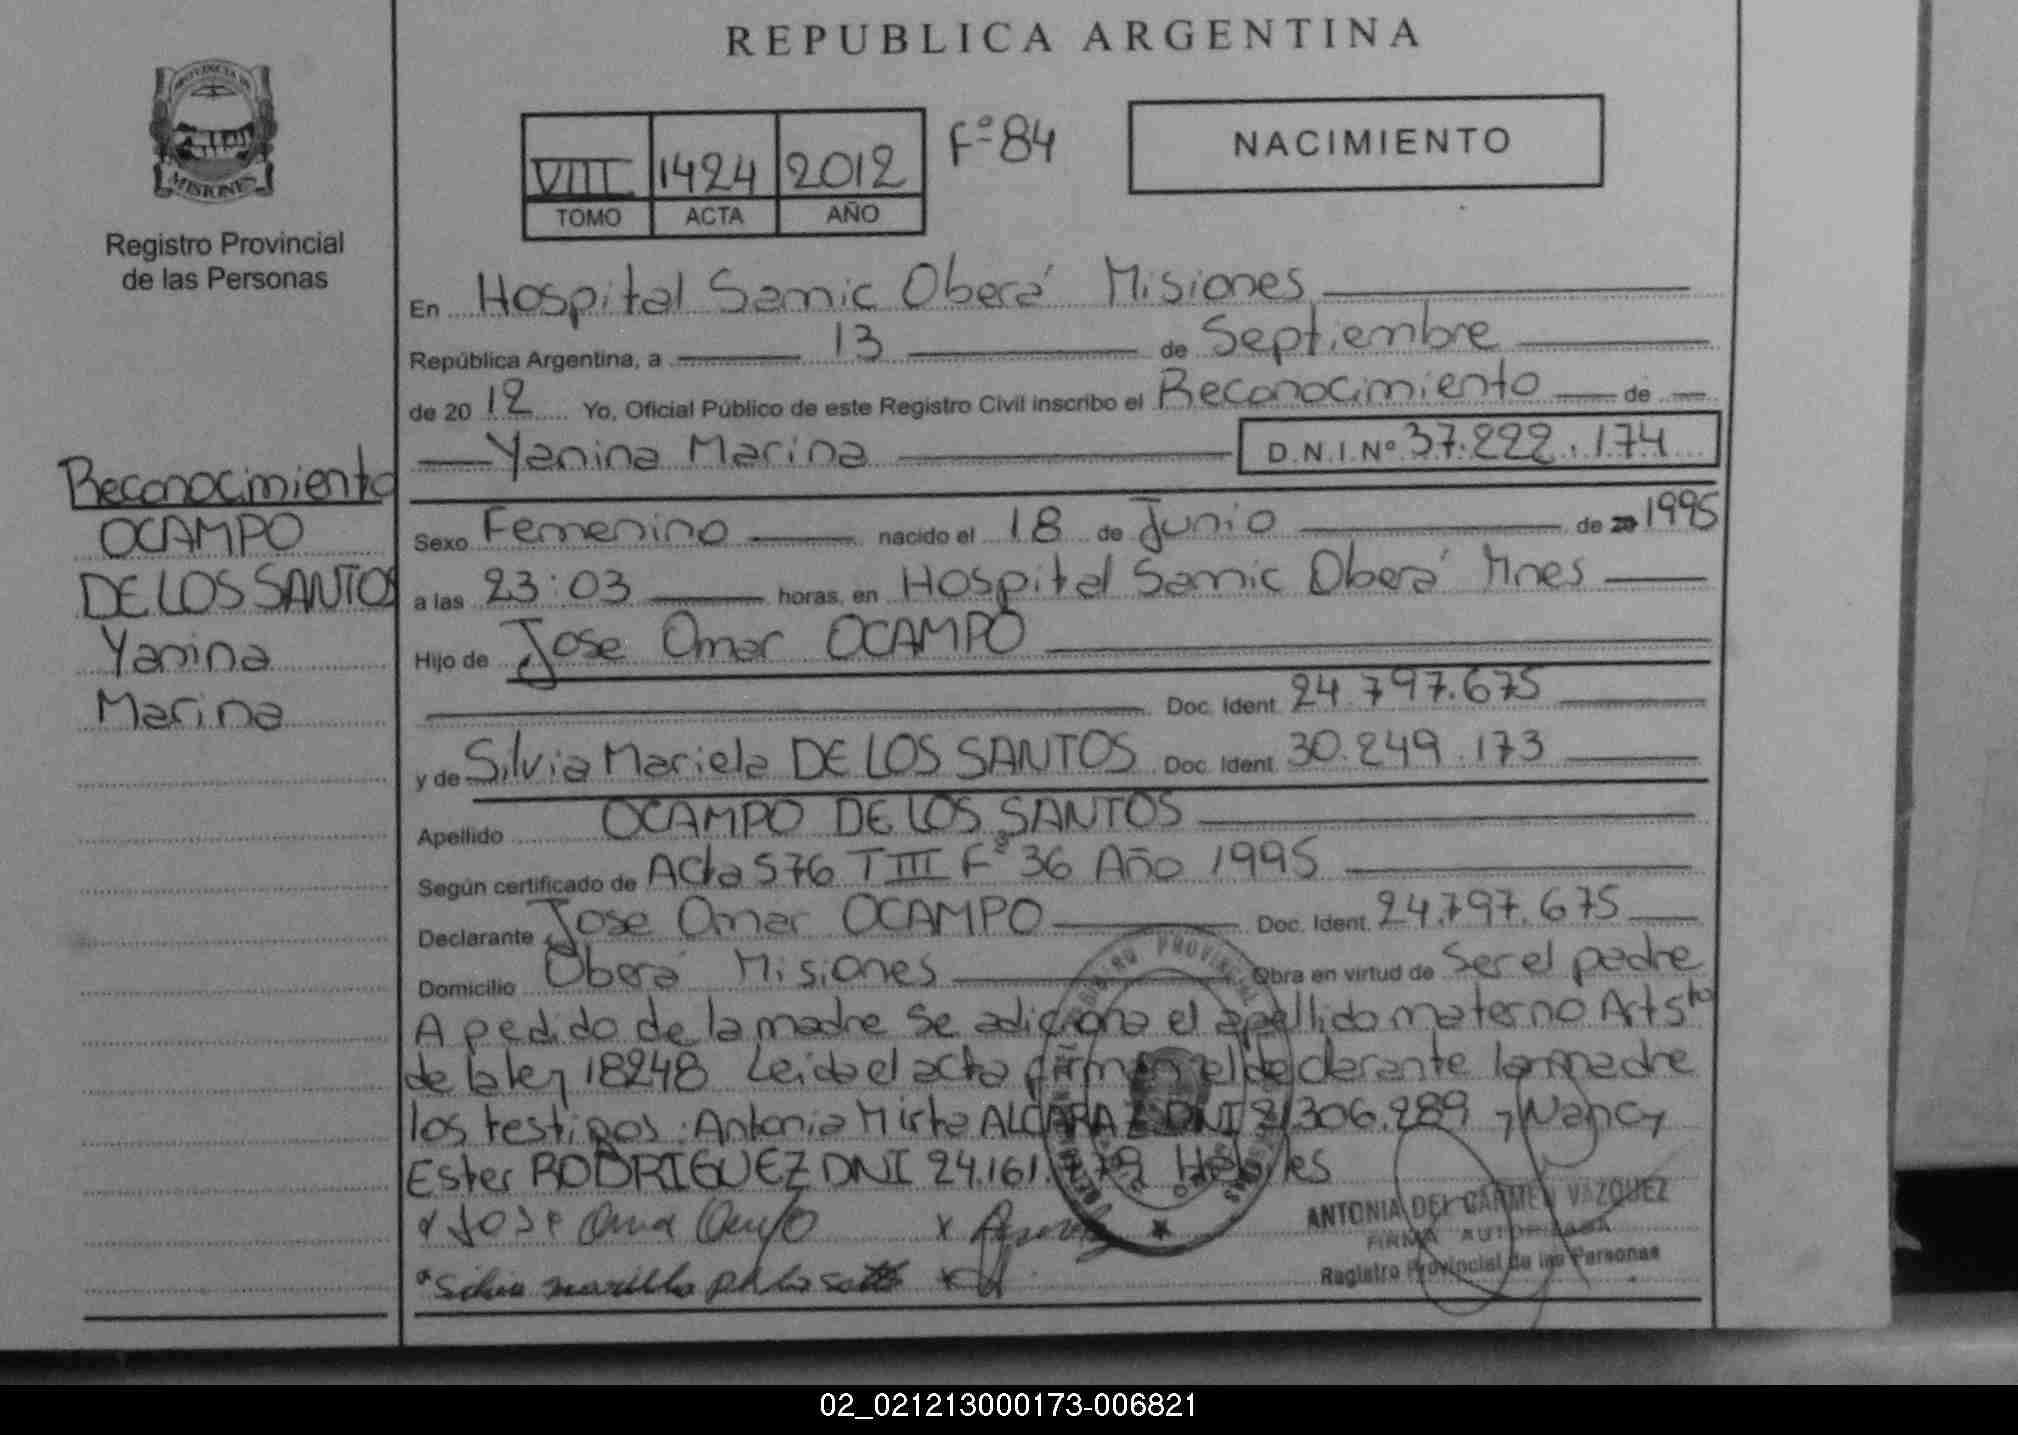 REPUBLICA ARGENTINA
PROVINCIA DE
MISIONES
Registro Provincial
de las Personas
VIII 1424 2012 Fº 84
TOMO ACTA AÑO
NACIMIENTO
Reconocimiento
OCAMPO
DE LOS SANTOS
Yanina
Marina
En Hospital Samic Oberá Misiones
República Argentina, a 13 de Septiembre
de 2012 Yo, Oficial Público de este Registro Civil inscribo el Reconocimiento de
Yanina Marina D.N.I. Nº 37.222.174
Sexo Femenino nacido el 18 de Junio de 1995
a las 23:03 horas, en Hospital Samic Oberá Mnes
Hijo de Jose Omar OCAMPO
Doc. Ident. 24.797.675
y de Silvia Mariela DE LOS SANTOS Doc. Ident. 30.249.173
Apellido OCAMPO DE LOS SANTOS
Según certificado de Acta 576 T III Fº 36 Año 1995
Declarante Jose Omar OCAMPO Doc. Ident. 24.797.675
Domicilio Oberá Misiones Obra en virtud de Ser el padre
A pedido de la madre se adiciona el apellido materno Art 5to
de la ley 18248 Leida el acta firman el declarante la madre
los testigos: Antonia Mirta ALCARAZ DNI 21.306.289 y Nancy
Ester RODRIGUEZ DNI 24.161. Habiles
x Jose Omar Ocampo x
x Silvia x
ANTONIA DEL CARMEN VAZQUEZ
FIRMA AUTORIZADA
Registro Provincial de las Personas
02_021213000173-006821